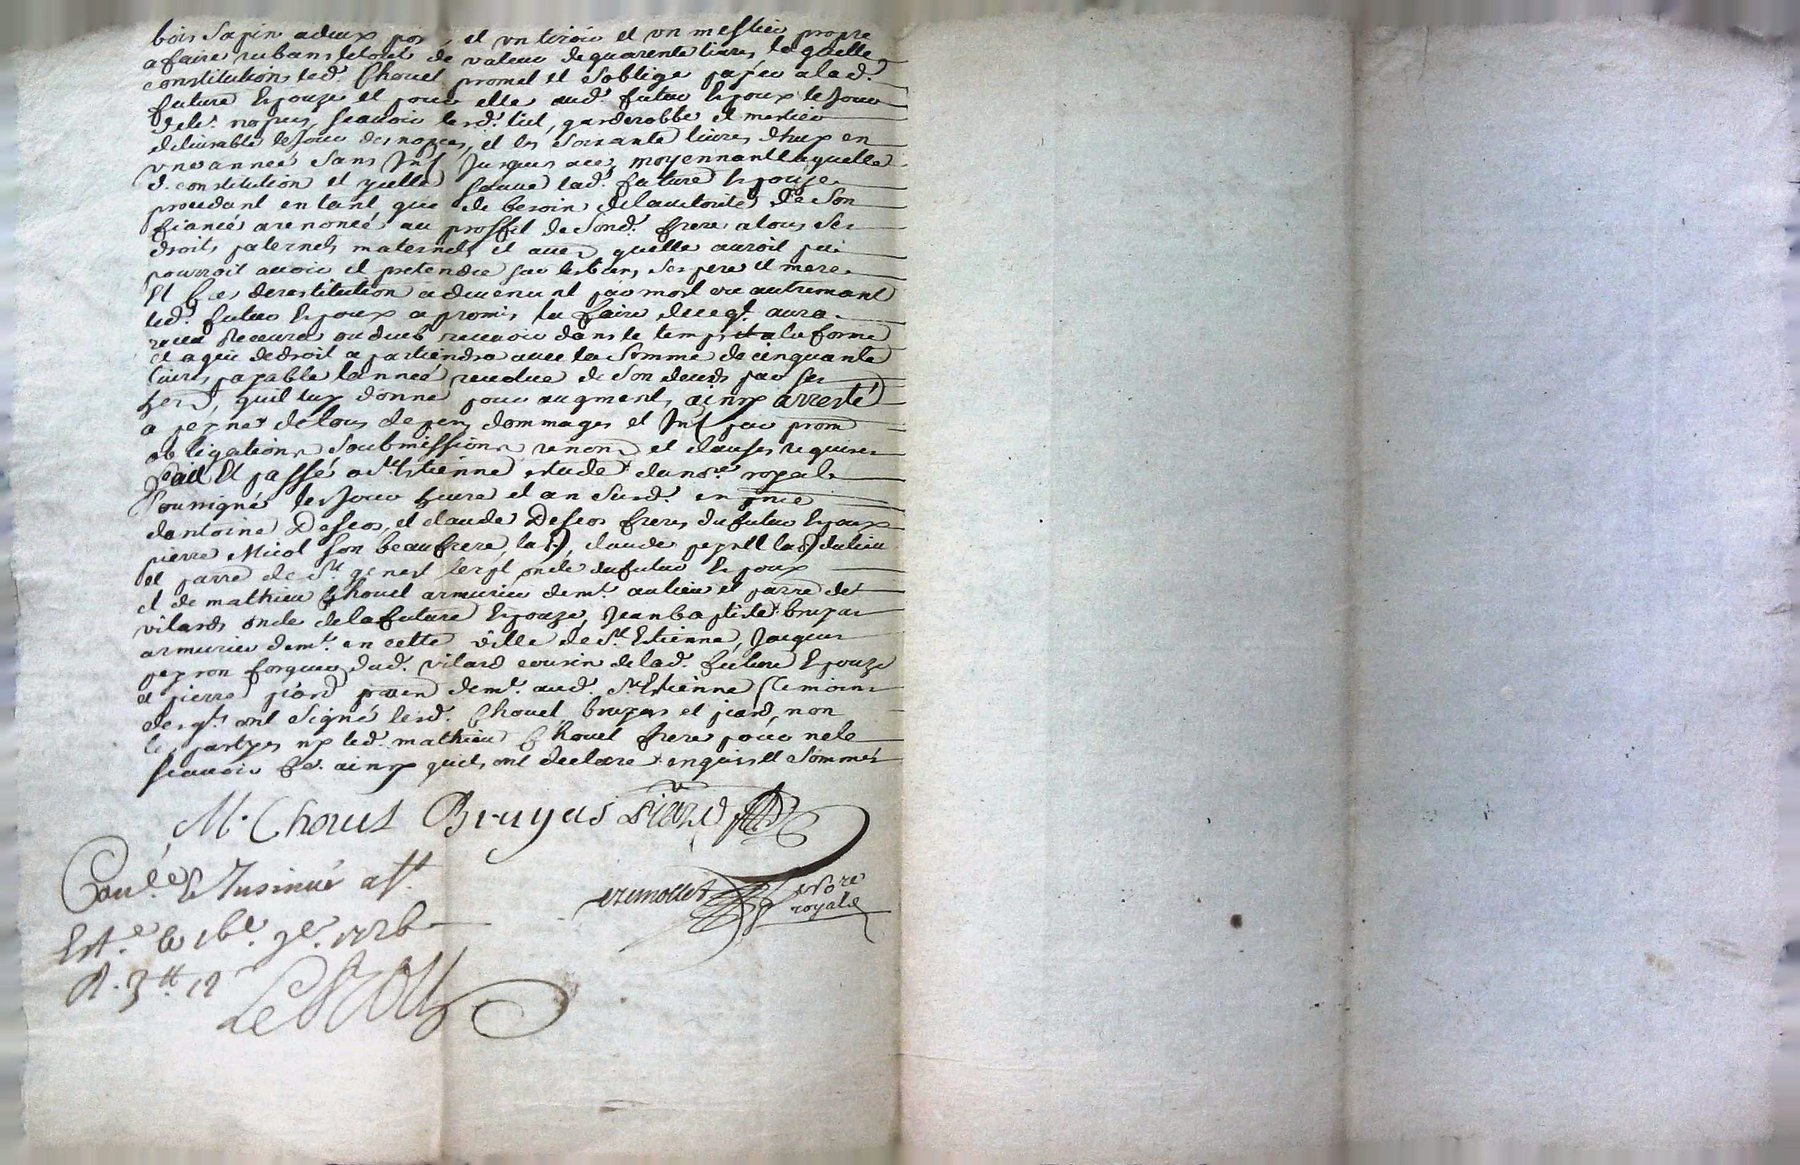 bois sapin a deux por, et un tiroir et un mestier propre
a faire rubans le tout de valeur de quarente livres, laquelle
constitution led. Chovet promet et soblige payer a lad.
future Epouze et pour elle aud. futur Epoux le jour
des nopces, scavoir lesd. lict, garderobbe et mestier
delivrable le jour des nopces, et les soixante livres dhuy en
une année sans Int jusques a ce, moyennant laquelle
d. constitution et ycelle sauve lad. future Epouze
procedant en tant que de besoin de lautorité de son
fiancé a renoncé au proffit de sond. frere a tous ses
droits paternels maternels et autres quelle auroit pu
pourroit avoir et pretendre sur les biens ses pere et mere
Et le cas de restitution advenant par mort ou autremant
led. futur Epoux a promis la faire de ce qt. aura
receu ou deub recevoir dans le temps et a la forme
et a qui de droit apartiendra avec la somme de cinquante
livres payable lannée revolue de son deceds par ses
herS, quil luy donne pour augment, ainsy arresté
a peyne de tous depens dommages et Int par prom
obligations soubmissions renons et clauses requises
fait Et passé a St Estienne etude du nore. royal
soussigné les jour heure et an susd. en pnce
dantoine Defeos, et claude Defeos freres du futur Epoux
pierre Micol son beaufrere, claude peyret du lieu
et parre de St genest lerpt oncle du futur Epoux
et de mathieu Chovet armurier demt. au lieu et parre de
vilards oncle de la future Epouze, Jean baptiste bruyas
armurier demt. en cette ville de St Etienne, Jacques
peyron forgeur dud. vilard cousin de lad. future Epouze
et pierre piard praen demt. aud. St Estienne temoins
desqt. ont signé lesd. Chovet, bruyas et piard, non
les partyes ny led. mathieu Chovet frere pour ne le
scavoir faire ainsy quils ont declare enquis Et sommés
M. Chovet Bruyas piard
Conlé. & Insinué a St.
Este. le 16e. 7e. 1726
R. 3tt 12
eremollet nore
royal